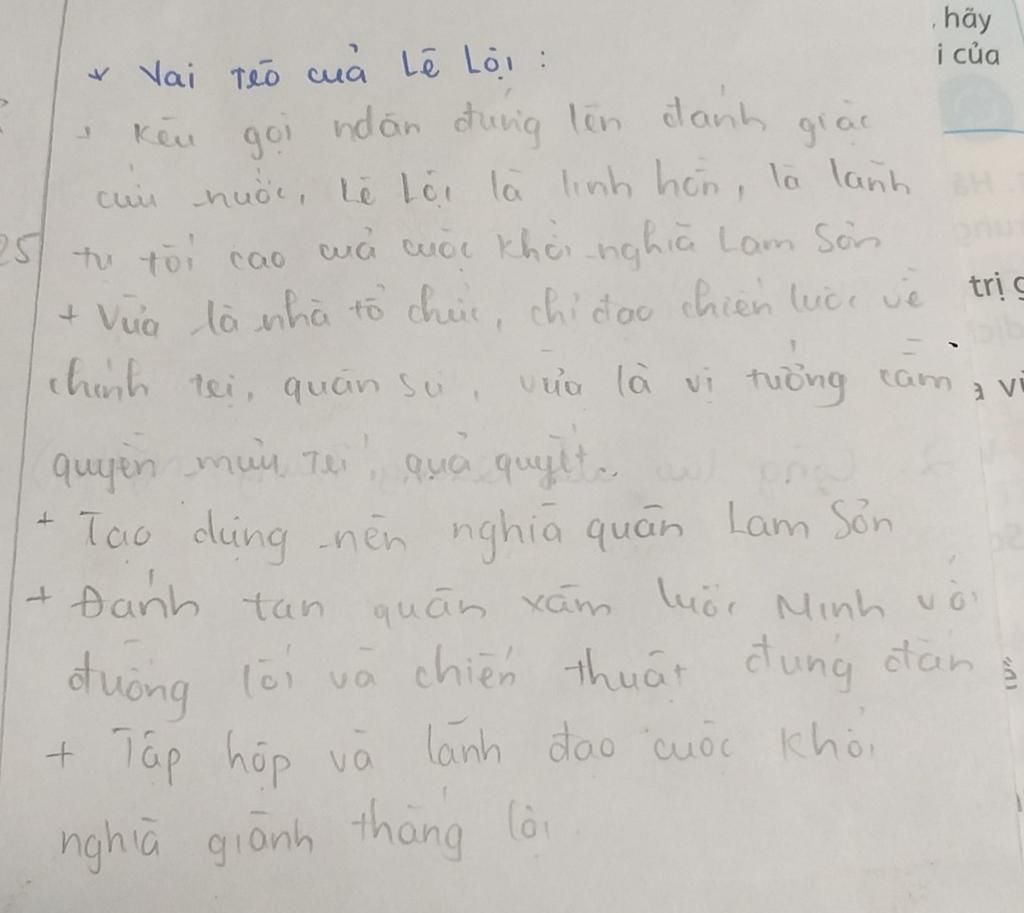 hãy
i của
* Vai trò của Lê Lợi :
+ Kêu gọi ndân đứng lên đánh giặc
cứu nước, Lê Lợi là linh hồn, là lãnh
25
tụ tối cao của cuộc khởi nghĩa Lam Sơn
trị
+ Vừa là nhà tổ chức, chỉ đạo chiến lược về
chính trị, quân sự, vừa là vị tướng cầm
quyền mưu trí, quả quyết.
+ Tạo dựng nên nghĩa quân Lam Sơn
+ Đánh tan quân xâm lược Minh với
đường lối và chiến thuật đúng đắn
+ Tập hợp và lãnh đạo cuộc khởi
nghĩa giành thắng lợi